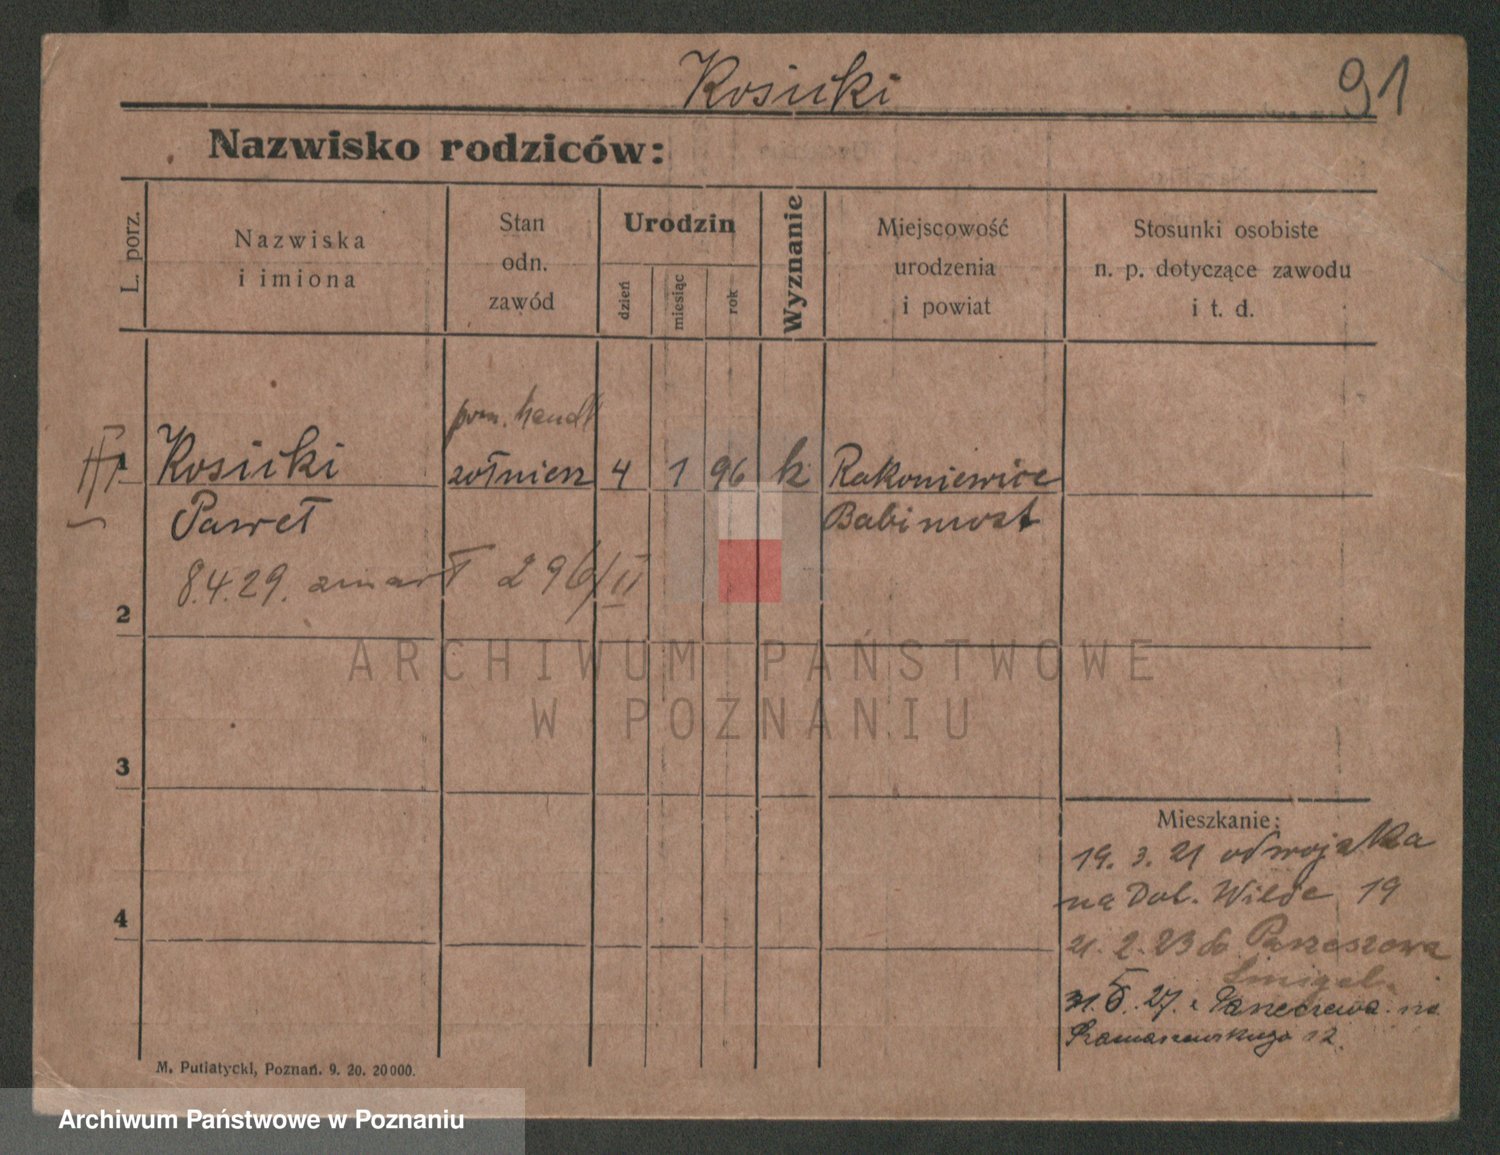 Kosicki
91
Nazwisko rodziców:
L. porz.
Nazwiska
i imiona
Stan
odn.
zawód
Urodzin
dzień
miesiąc
rok
Wyznanie
Miejscowość
urodzenia
i powiat
Stosunki osobiste
n. p. dotyczące zawodu
i t. d.
pom. handl
1 Kosicki żołnierz 4 1 96 k Rakoniewice
Paweł Babimost
8.4.29. zmarł 296/II
2
ARCHIWUM PAŃSTWOWE
W POZNANIU
3
4
Mieszkanie:
19. 3. 21 od wojska
na Dol. Wilde 19
21. 2. 23 do
Śmigel.
31. 5. 27. z na
12.
M. Putiatycki, Poznań. 9. 20. 20000.
Archiwum Państwowe w Poznaniu